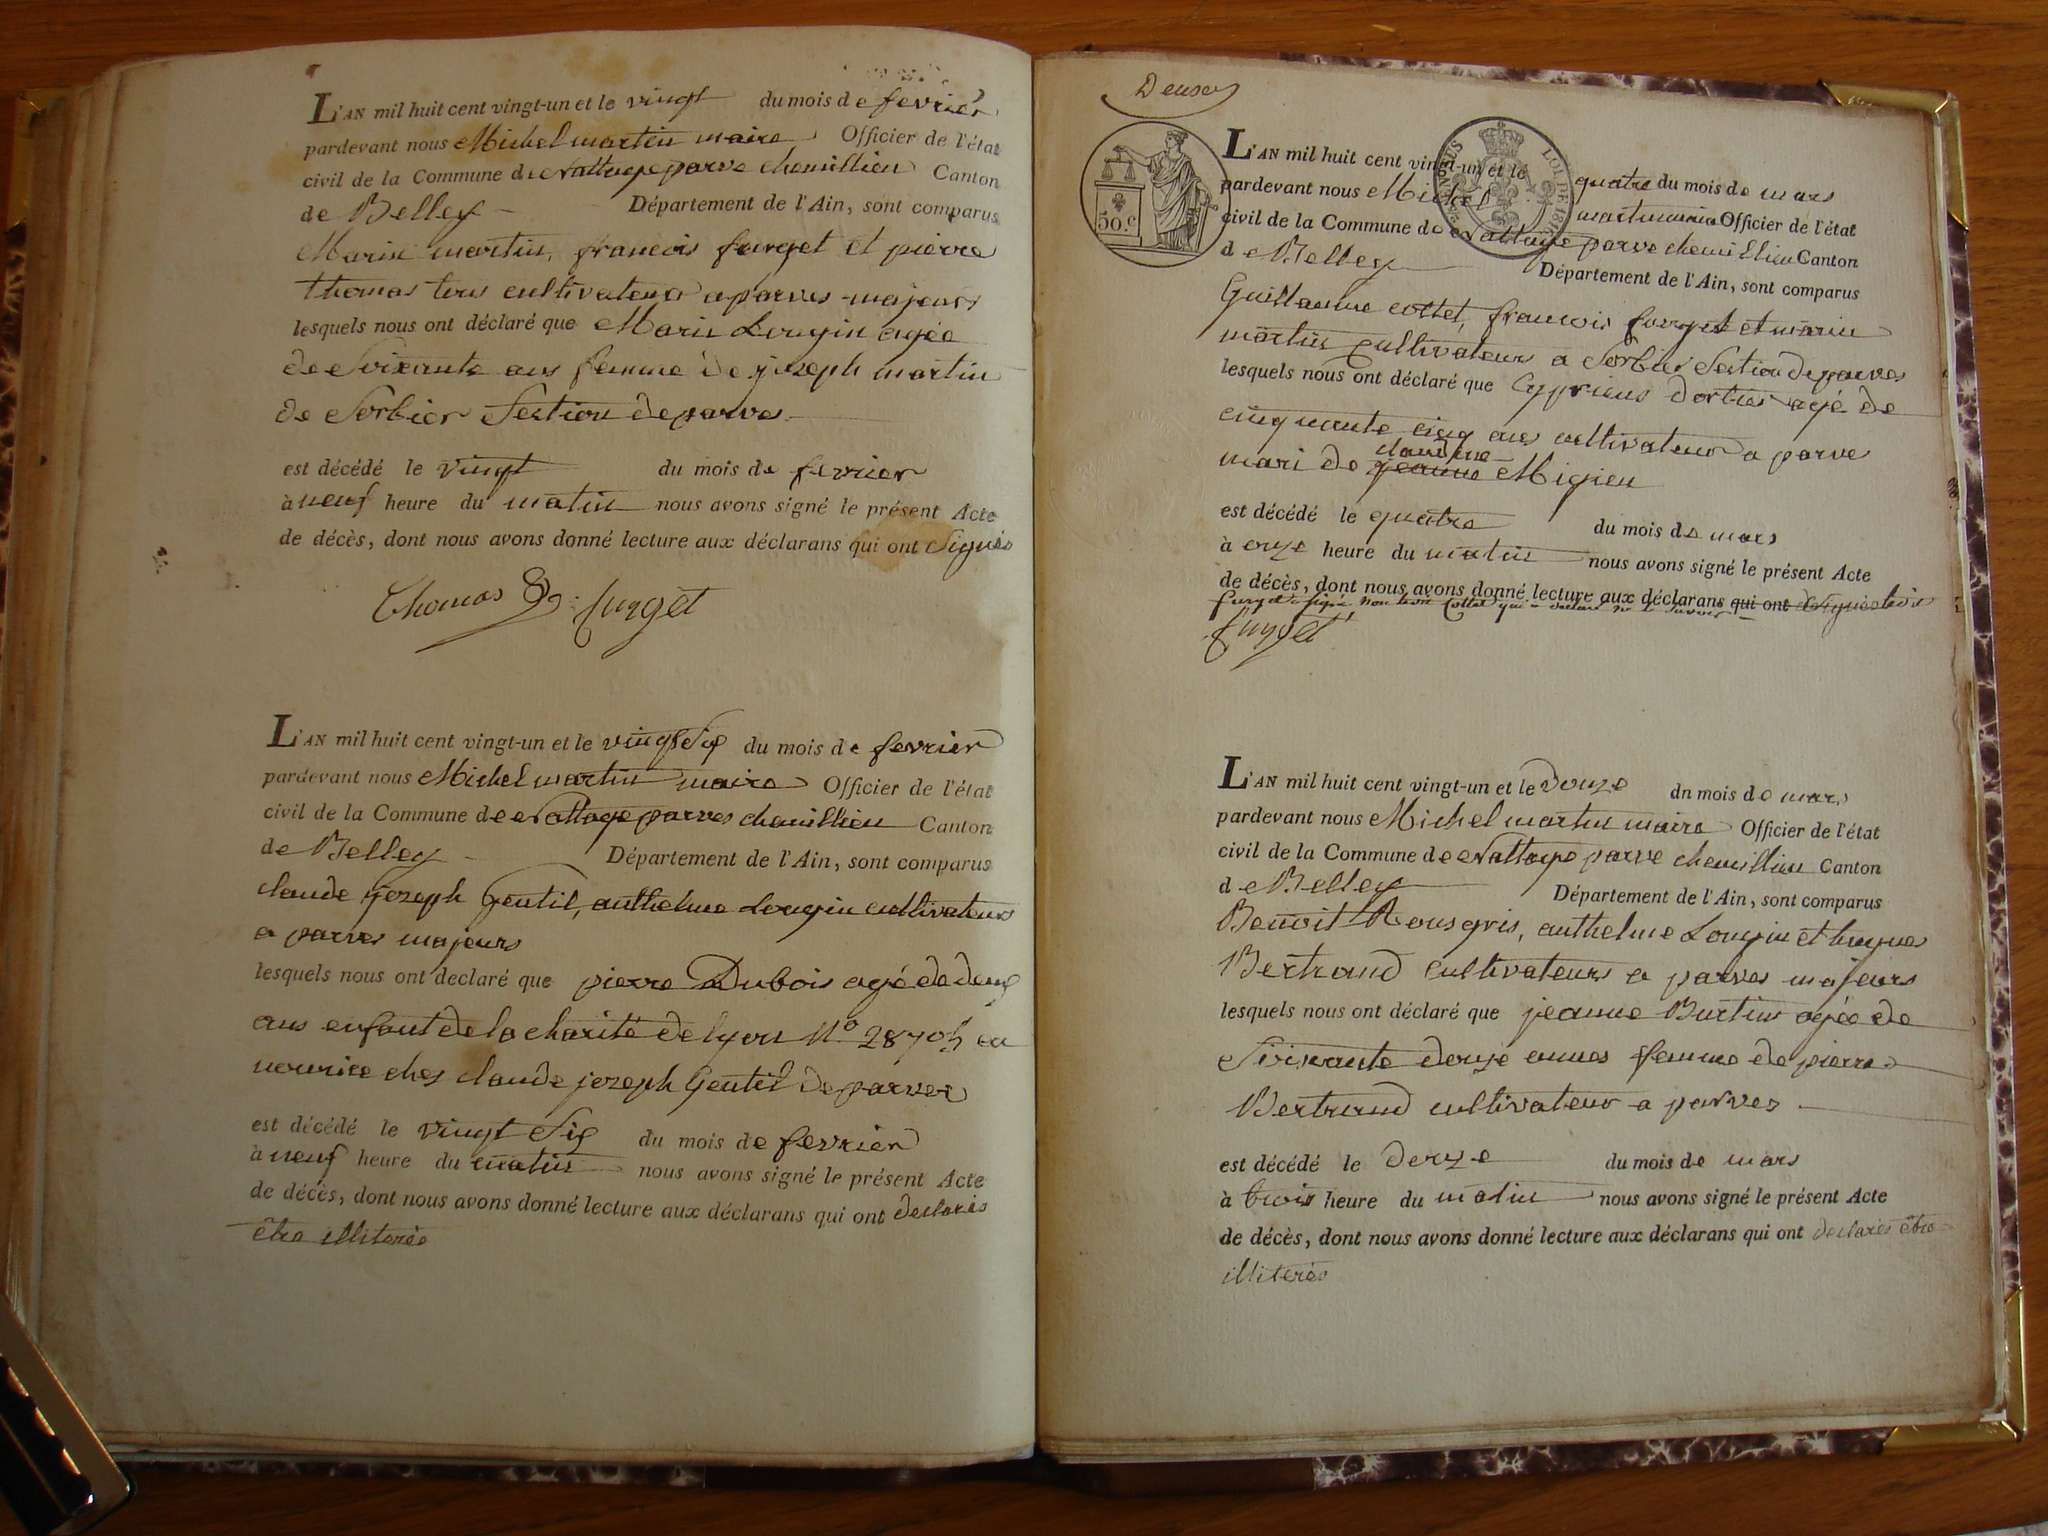 L'AN mil huit cent vingt-un et le vingt du mois de fevrier
pardevant nous Michel martin maire Officier de l'état
civil de la Commune de Nattage parve chemillieu Canton
de Belley Département de l'Ain, sont comparus
Marin martin, francois furget et pierre
thomas tous cultivateurs a parves majeurs
lesquels nous ont déclaré que Marie Longin agée
de Soixante ans femme de jozeph martin
de Sorbier Section de parves
est décédé le vingt du mois de fevrier
à neuf heure du matin nous avons signé le présent Acte
de décès, dont nous avons donné lecture aux déclarans qui ont Signés
Thomas furget
L'AN mil huit cent vingt-un et le vingt Six du mois de fevrier
pardevant nous Michel martin maire Officier de l'état
civil de la Commune de Nattage parves chemillieu Canton
de Belley Département de l'Ain, sont comparus
claude jozeph Gentil, anthelme Longin cultivateurs
a parves majeurs
lesquels nous ont déclaré que pierre Dubois agé de deux
ans enfant de la charité de lyon N° 28705 en
nourice ches claude jozeph Gentil de parves
est décédé le vingt Six du mois de fevrier
à neuf heure du matin nous avons signé le présent Acte
de décès, dont nous avons donné lecture aux déclarans qui ont declarés
être illiterés
50 c.
LOI DE 18
L'AN mil huit cent vingt-un et le quatre du mois de mars
pardevant nous Michel martin maire Officier de l'état
civil de la Commune de Nattage parve chemillieu Canton
de Belley Département de l'Ain, sont comparus
Guillaume collet, francois furget et marin
martin cultivateurs a Sorbier Section de parves
lesquels nous ont déclaré que Cyprien dortier agé de
cinquante cinq ans cultivateur a parve
claudine
mari de jeanne Migieu
est décédé le quatre du mois de mars
à onze heure du matin nous avons signé le présent Acte
de décès, dont nous avons donné lecture aux déclarans qui ont
furget signé non collet qui a declaré ne le savoir
furget
L'AN mil huit cent vingt-un et le douze dn mois de mars
pardevant nous Michel martin maire Officier de l'état
civil de la Commune de Nattage parve chemillieu Canton
de Belley Département de l'Ain, sont comparus
Benoit Rousgris, anthelme Longin et hugues
Bertrand cultivateurs a parves majeurs
lesquels nous ont déclaré que jeanne Burtin agée de
Soixante douze annes femme de pierre
Bertrand cultivateur a parves
est décédé le douze du mois de mars
à trois heure du matin nous avons signé le présent Acte
de décès, dont nous avons donné lecture aux déclarans qui ont declarés être
illiterés